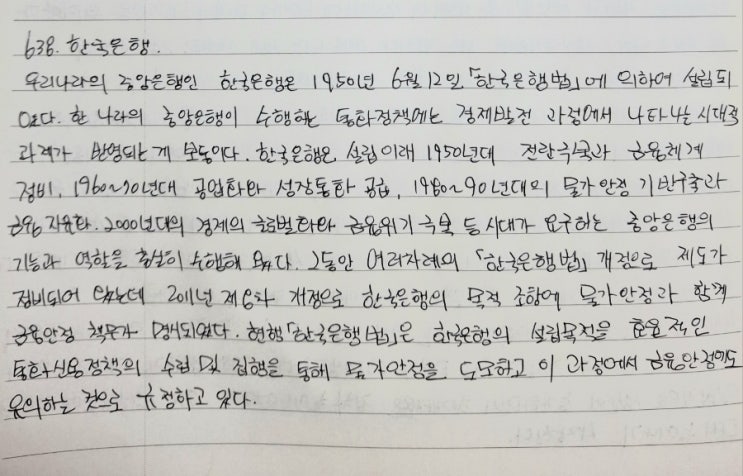 638. 한국은행.
우리나라의 중앙은행인 한국은행은 1950년 6월 12일 「한국은행법」에 의하여 설립되
었다. 한 나라의 중앙은행이 수행하는 통화정책에는 경제발전 과정에서 나타나는 시대적
과제가 반영되는 게 보통이다. 한국은행은 설립 이래 1950년대 전란극복과 금융체계
정비, 1960~70년대 공업화와 성장통화 공급, 1980~90년대의 물가안정 기반구축과
금융 자유화, 2000년대의 경제의 글로벌화와 금융위기 극복 등 시대가 요구하는 중앙은행의
기능과 역할을 충실히 수행해 왔다. 그동안 여러차례의 「한국은행법」 개정으로 제도가
정비되어 왔는데 2011년 제8차 개정으로 한국은행의 목적 조항에 물가안정과 함께
금융안정 책무가 명시되었다. 현행 「한국은행법」은 한국은행의 설립목적을 효율적인
통화신용정책의 수립 및 집행을 통해 물가안정을 도모하고 이 과정에서 금융안정에도
유의하는 것으로 규정하고 있다.